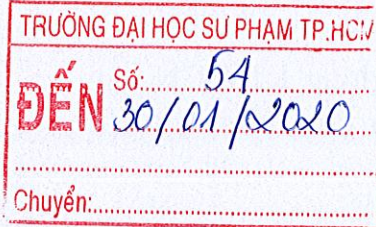 TRƯỜNG ĐẠI HỌC SƯ PHẠM TP.HCM
ĐẾN
Số: 54
30/01/2020
Chuyển: